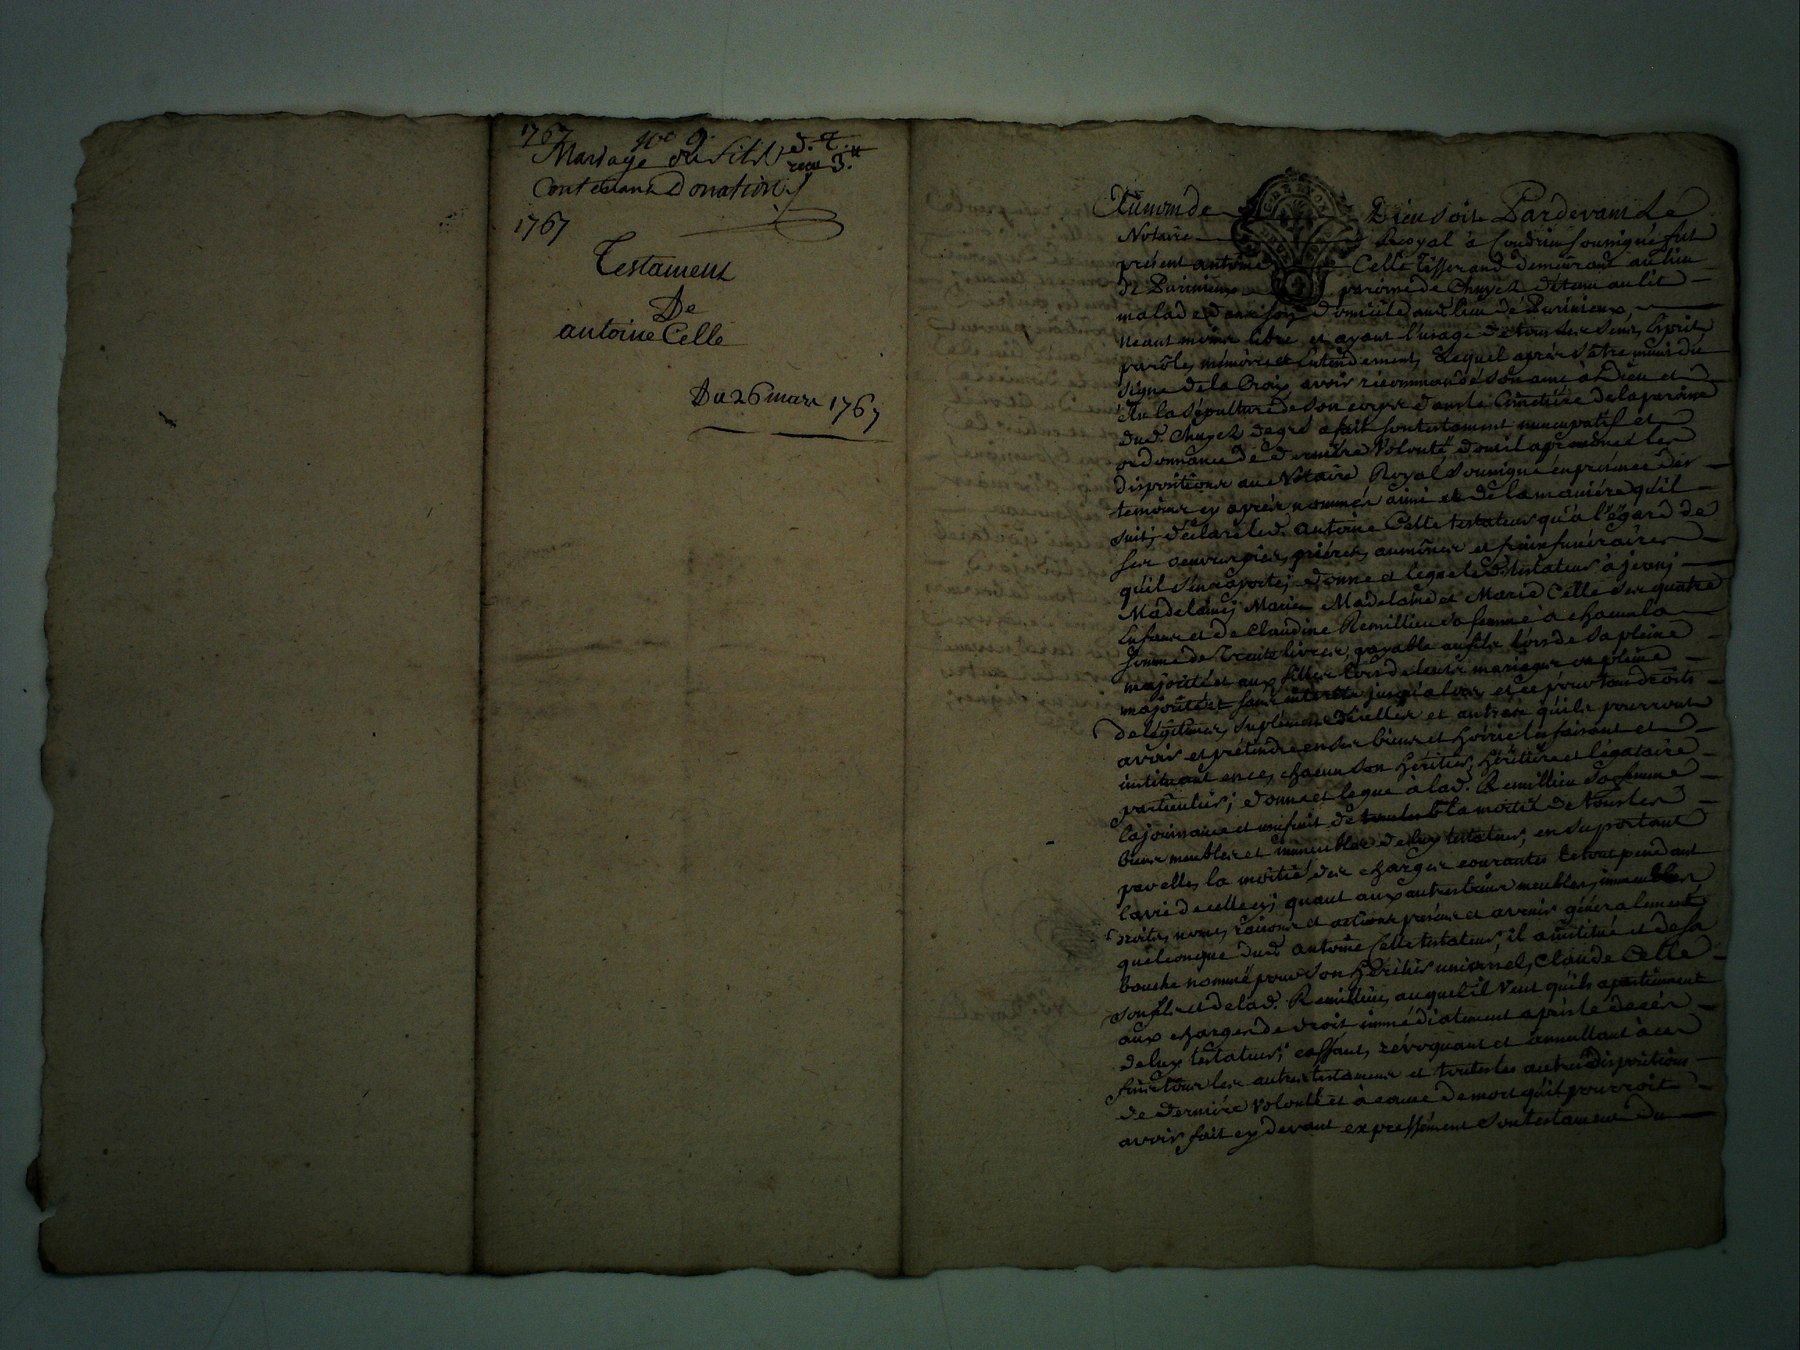 1767
N° 9.
Mariage du fils
Contenant Donation
1767
Testament
De
antoine Celle
Du 26 mars 1767
Au nom de Dieu soit Pardevant Le
Notaire Royal à Condrieu soussigné fut
présent antoine Celle Tisserand demeurant au lieu
de Purinieux paroisse de Chuyer détenu au lit
malade dans son domicile aud. lieu de Purinieux
néant moins libre, et ayant l'usage de tous ses sens, Esprit
parôle, mémoire et Entendement, Lequel aprés s'être muni du
signe de la Croix, avoir récommandé son ame à Dieu et
Elu la sépulture de son corps dans le Cimetiére de la paroisse
dud. Chuyer de gré a fait son testament nuncupatif et
ordonnance de derniére Volonté dont il a prononcé les
dispositions au Notaire Royal soussigné en présence des
temoins cy aprés nommés ainsi et de la maniére qu'il
suit, déclare led. antoine Celle testateur qu'à l'égard de
ses oeuvres pies, priéres, aumônes et frais funéraires
qu'il s'en raporte; donne et legue led. testateur à
Madelaine, Marie Madelaine et Marie Celle ses quatre
Enfans et de Claudine Remillieu sa femme à chacun la
somme de Trente livres, payable au fils lors de sa pleine
majorité et aux filles lors de leurs mariages ou pleine
majorité et sans intérêts jusqu'alors, et ce pour tous droits
de légitimes, suplément d'icelles et autres qu'ils pourront
avoir et prétendre en ses biens et hoirie les faisant et
instituant en ce, chacun son héritier, héritiére et légataire
particulier; donne et legue à lad. Remillieu sa femme
la jouissance et usufruit de la moitié de tous les
biens meubles et immeubles de luy testateur, en suportant
par elle, la moitié des charges courantes le tout pendant
la vie de celle cy; quant aux autres biens meubles, immeubles
droits, noms, raisons et actions présens et avenir généralement
quelconque dud. antoine Celle testateur, il a institué et de sa
bouche nommé pour son héritier universel, Claude Celle
son fils et de lad. Remillieu, auquel il Veut qu'ils apartiennent
aux charges de droit immédiatement aprés le decés
de luy testateur; cassant, révoquant et annullant à ces
fins tous les autres testamens et toutes les autres dispositions
de derniére Volonté et à cause de mort qu'il pourroit
avoir fait cy devant expressément son testament du